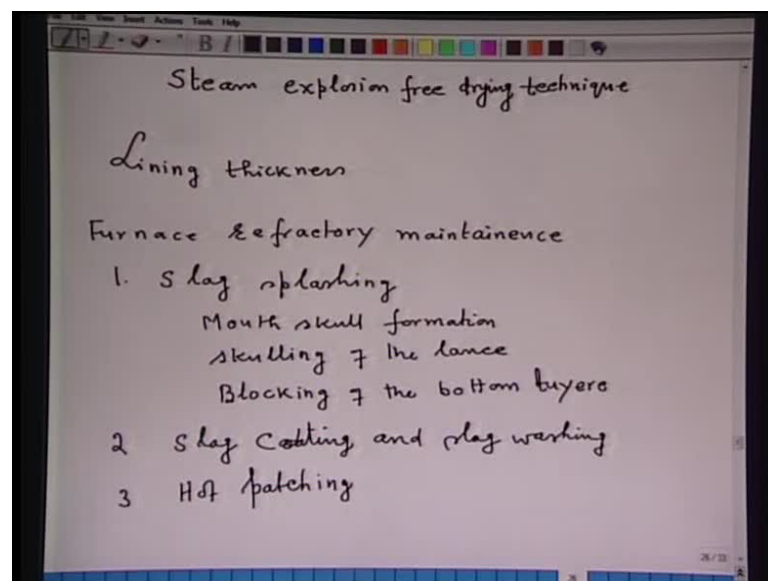 Edit View Insert Actions Tools Help
B I
Steam explosion free drying technique
Lining thickness
Furnace Refractory maintainence
1. Slag splashing
Mouth skull formation
skulling of the lance
Blocking of the bottom tuyers
2 Slag Coating and slag washing
3 Hot patching